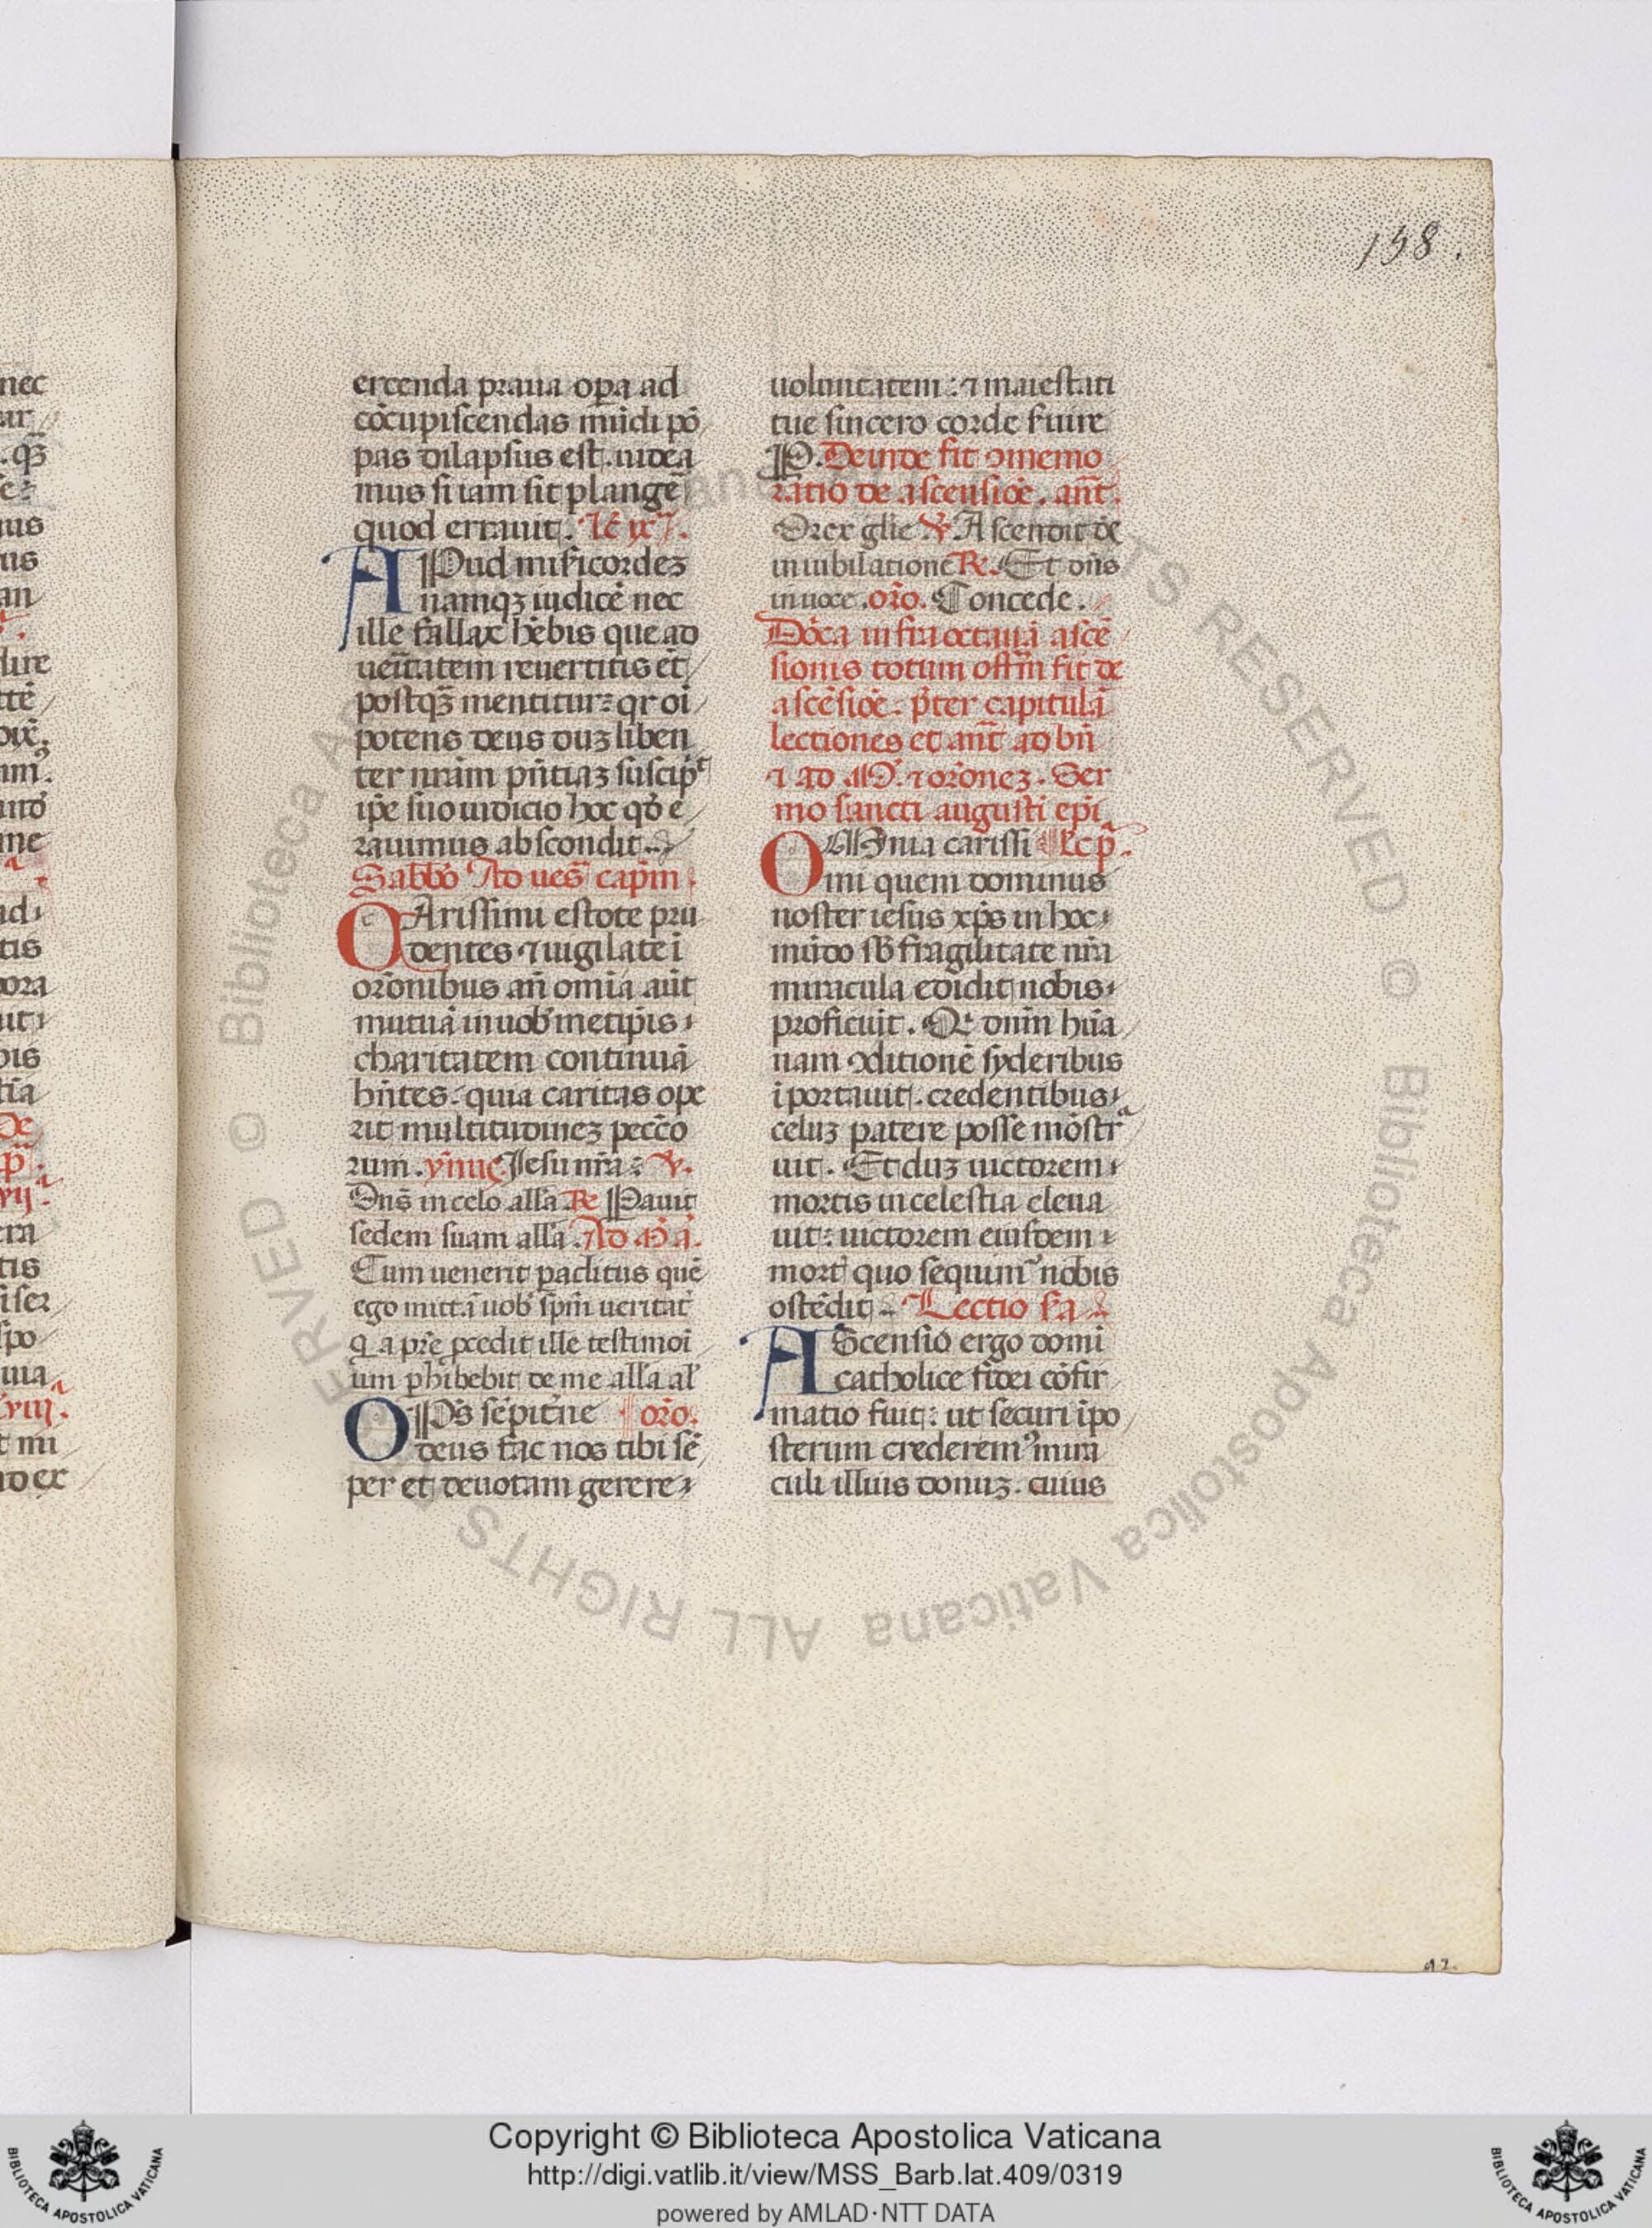 158.
ercenda praua opa ad
cōcupiscendas mūdi pō
pas dilapsus est. uidea
mus si iam sit plangē
quod errauit. lc̄ ix
APud misicordez
namqꝫ iudicē nec
ille fallax hēbis que ad
ueritatem reuertitis et
postqꝫ mentitur: qr oī
potens deus duz liben
ter nrām pn̄tiaz suscip
ip̄e suo iudicio hoc qd̄ e
rauimus abscondit.
Sabbō Ad ues̄ capm̄
CArissimi estote pru
dentes ⁊ uigilate ī
orōnibus an̄ omīa aūt
mutuā in uob metip̄is
charitatem continuā
hn̄tes. quia caritas ope
rit multitudinez peccō
rum. ymꝰ Jesu nr̄a: ℣.
Dn̄s in celo allā ℟ Pauit
sedem suam allā. Ad M̄ a.
Cum uenerit paclitus quē
ego mittā uob sp̄m ueritat
q a pr̄e pcedit ille testimoī
um phibebit de me allā al
OPs̄ sēpitn̄e orō.
deus fac nos tibi sē
per et deuotam gerere
uoluntatem: ⁊ maiestati
tue sincero corde suire
P. Deinde fit ꝯmemo
ratio de ascensiōe. an̄t.
O rex glīe ℣. Ascendit dē
in iubilatione ℟. Et dn̄s
in uoce. orō. Concede.
Dōca infra octauā ascē
sionis totum offm̄ fit de
ascēsiōe. p̄ter capitulā
lectiones et an̄t ad bn̄
⁊ ad M. ⁊ orōnez. Ser
mo sancti augustī epī
OMnia carissi lc p.
mi quem dominus
noster iesus xp̄s in hoc
mūdo sb fragilitate nr̄a
miracula edidit nobis
proficuit. Q dum hūa
nam ꝯditionē syderibus
īportauit. credentibus
celuz patere posse mōstr
uit. Et duz uictorem
mortis in celestia eleua
uit: uictorem eiusdem
mort quo sequim nobis
ostēdit Lectio sa
AScensio ergo domī
catholice fidei cōfir
matio fuit: ut securi īpo
sterum crederemꝰ mira
culi illius donuz. cuius
nec
.qꝫ
lire
me
tis
era
t mi
Copyright © Biblioteca Apostolica Vaticana
http://digi.vatlib.it/view/MSS_Barb.lat.409/0319
powered by AMLAD·NTT DATA
BIBLIOTECA APOSTOLICA VATICANA
BIBLIOTECA APOSTOLICA VATICANA
© Biblioteca Apostolica Vaticana ALL RIGHTS RESERVED